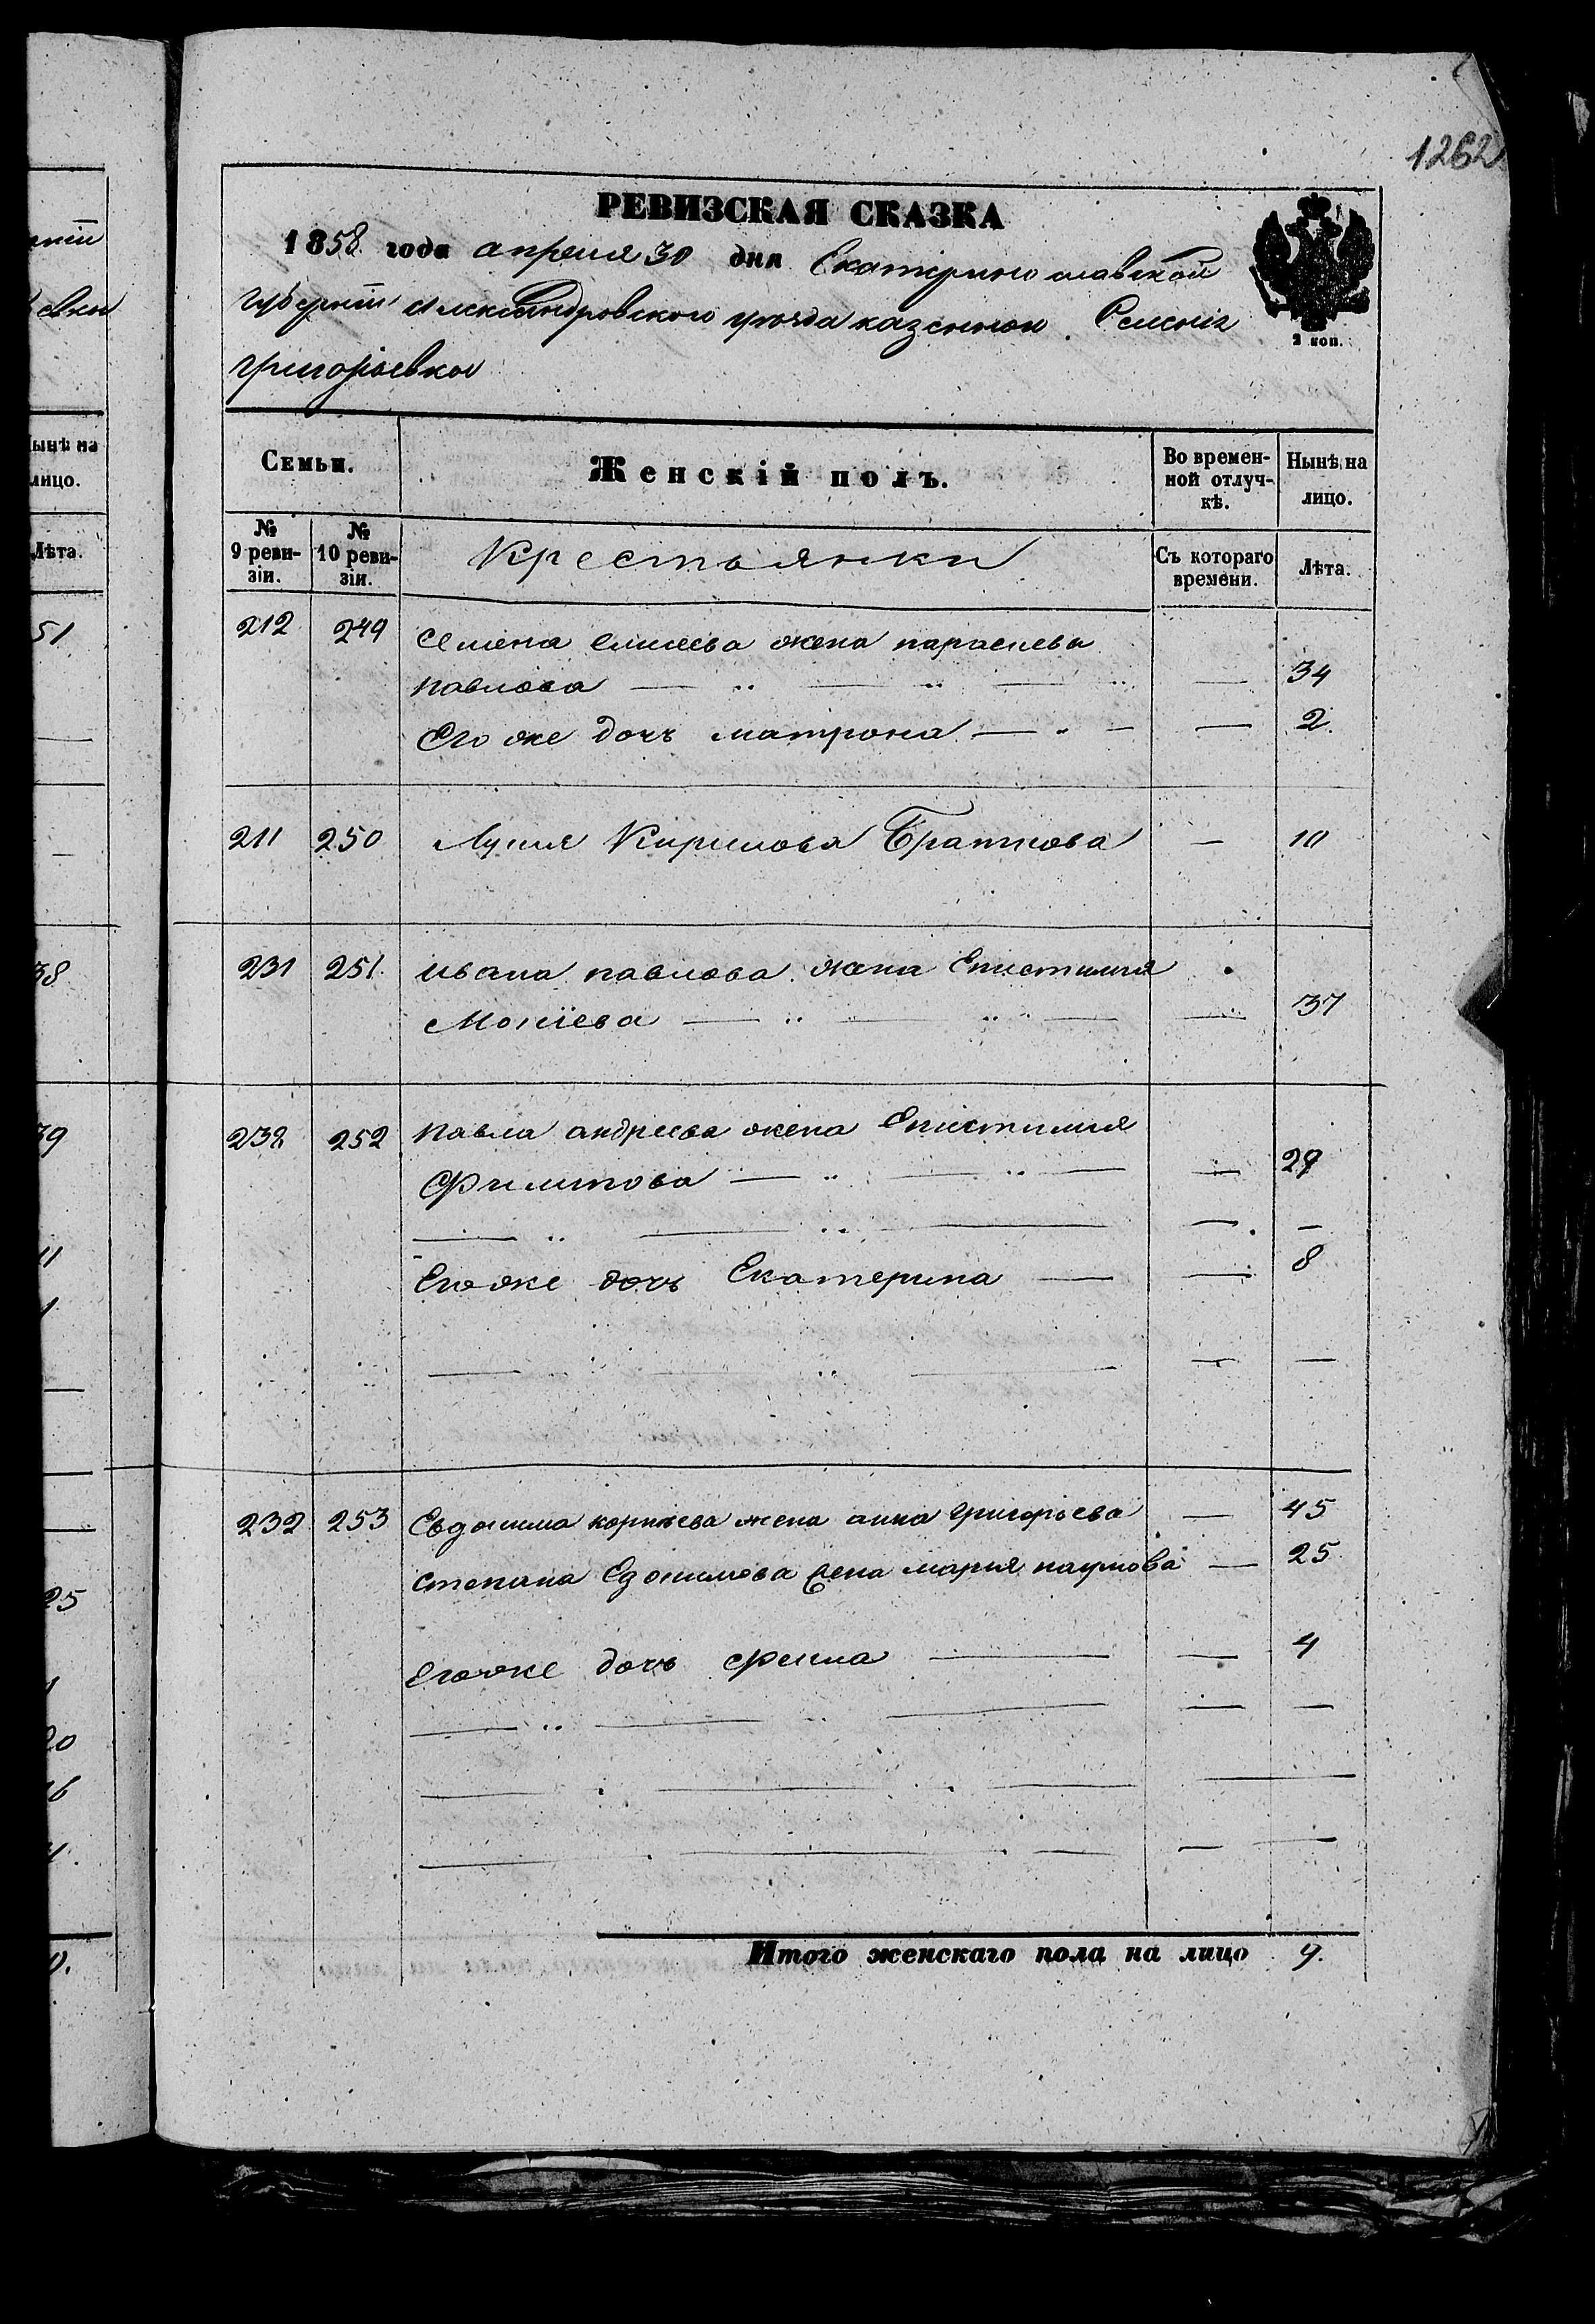 1262
РЕВИЗСКАЯ СКАЗКА
1858 года апреля 30 дня Екатеринославской
губернiи Александровского уезда казенной Селенiя
григорiевки
2 коп.
Семьи.
Женскій полъ.
Во времен-
ной отлуч-
кѣ.
Нынѣ на
лицо.
№
9 реви-
зіи.
№
10 реви-
зіи.
Крестьянки
Съ котораго
времени.
Лѣта.
212 249 Семена елисеева жена параскева
павлова — — — — 34
Его же дочь матрона — — — 2
211 250 Лукия Кирилова Браткова — 10
231 251 ивана павлова жена Епистимия
Мокіева — — — — 37
238 252 павла андреева жена Епистимия
Филипова — — — — 29
— — — — —
Егоже дочь Екатерина — — 8
— — — — —
232 253 Евдокима корнѣева жена анна григорьева — 45
степана Едокимова жена мария наумова — 25
егоже дочь фекла — — 4
— — — — —
— — — —
— — — — —
Итого женскаго пола на лицо 9.
нiи
евки
Нынѣ на
лицо.
Лѣта.
51
38
39
11
25
20
16